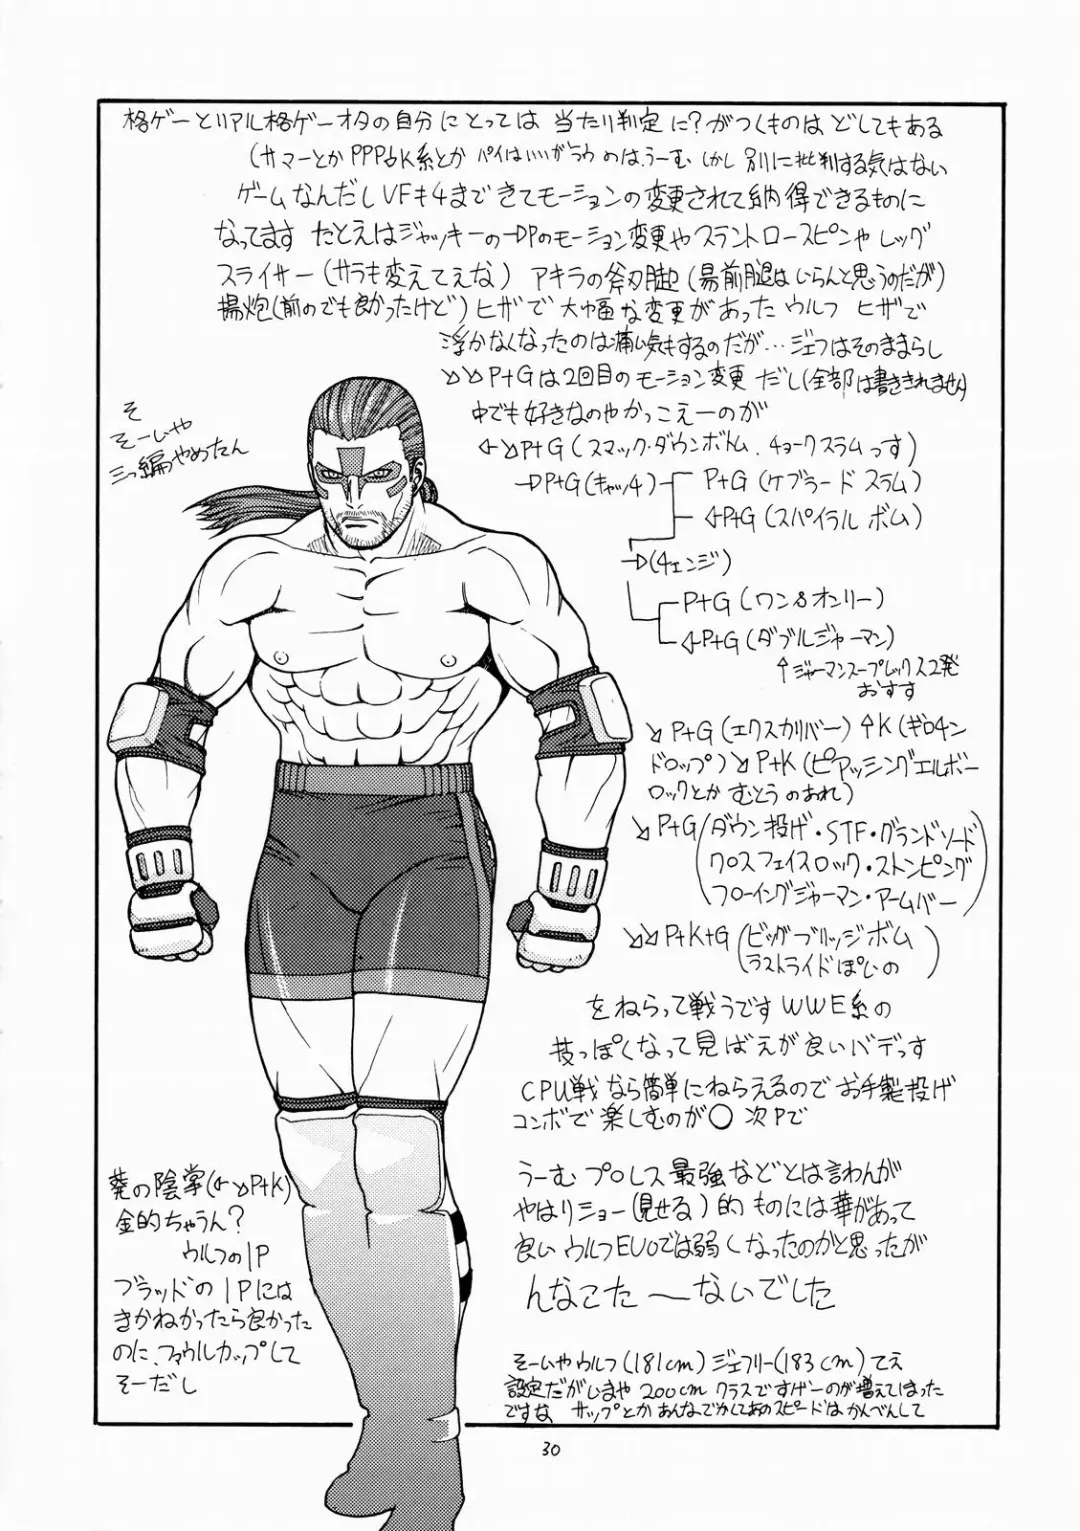 格ゲーとリアル格ゲーオタの自分にとっては 当たり判定に?がつくものはどしてもある
(サマーとか PPP↓K系とか パイはいいがラウのは、うーむ しかし 別に批判する気はない
ゲームなんだし VFも4まできてモーションの変更されて納得できるものに
なってます たとえばジャッキーの→Pのモーション変更やスラントロースピンや レッグ
スライサー(サラも変えてえな) アキラの斧刃脚(昜前腿はいらんと思うのだが)
揚炮(前のでも良かったけど) ヒザで大幅な変更があった ウルフ ヒザで
浮かなくなったのは痛い気もするのだが… ジェフはそのままらし
↘↘P+Gは2回目のモーション変更 だし(全部は書ききれません)
中でも好きなのやかっこえーのが
←↘P+G(スマック・ダウンボトム、チョークスラムっす)
→P+G(キャッチ)
P+G(ケブラード スラム)
←P+G(スパイラル ボム)
→(チェンジ)
P+G(ワン&オンリー)
←P+G(ダブルジャーマン)
↑ジャーマンスープレックス2発
おすす
↘P+G(エクスカリバー) ↑K(ギロチン
ドロップ) ↘P+K(ピアッシングエルボー
ロックとか むとうのあれ)
↘P+G(ダウン投げ・STF・グランドソード
クロスフェイスロック・ストンピング
フローイングジャーマン・アームバー)
↘↘P+K+G(ビッグブリッジボム
ラストライドぽいの)
をねらって戦うです WWE系の
技っぽくなって見ばえが良いバデっす
CPU戦なら簡単にねらえるので お手製投げ
コンボで楽しむのが○ 次Pで
うーむ プロレス最強などとは言わんが
やはりショー(見せる)的ものには華があって
良い ウルフEVOでは弱くなったのかと思ったが
んなこた〜ないでした
そーいやウルフ(181cm)ジェフリー(183cm)てえ
設定だがいまや200cmクラスですげーのが増えてしまった
ですな サップとかあんなでかくてあのスピードはかんべんして
そ
そーいや
三つ編やめたん
葵の陰掌(←→P+K)
金的ちゃうん?
ウルフの1P
ブラッドの1Pには
きかねかったら良かった
のに、ファウルカップして
そーだし
30